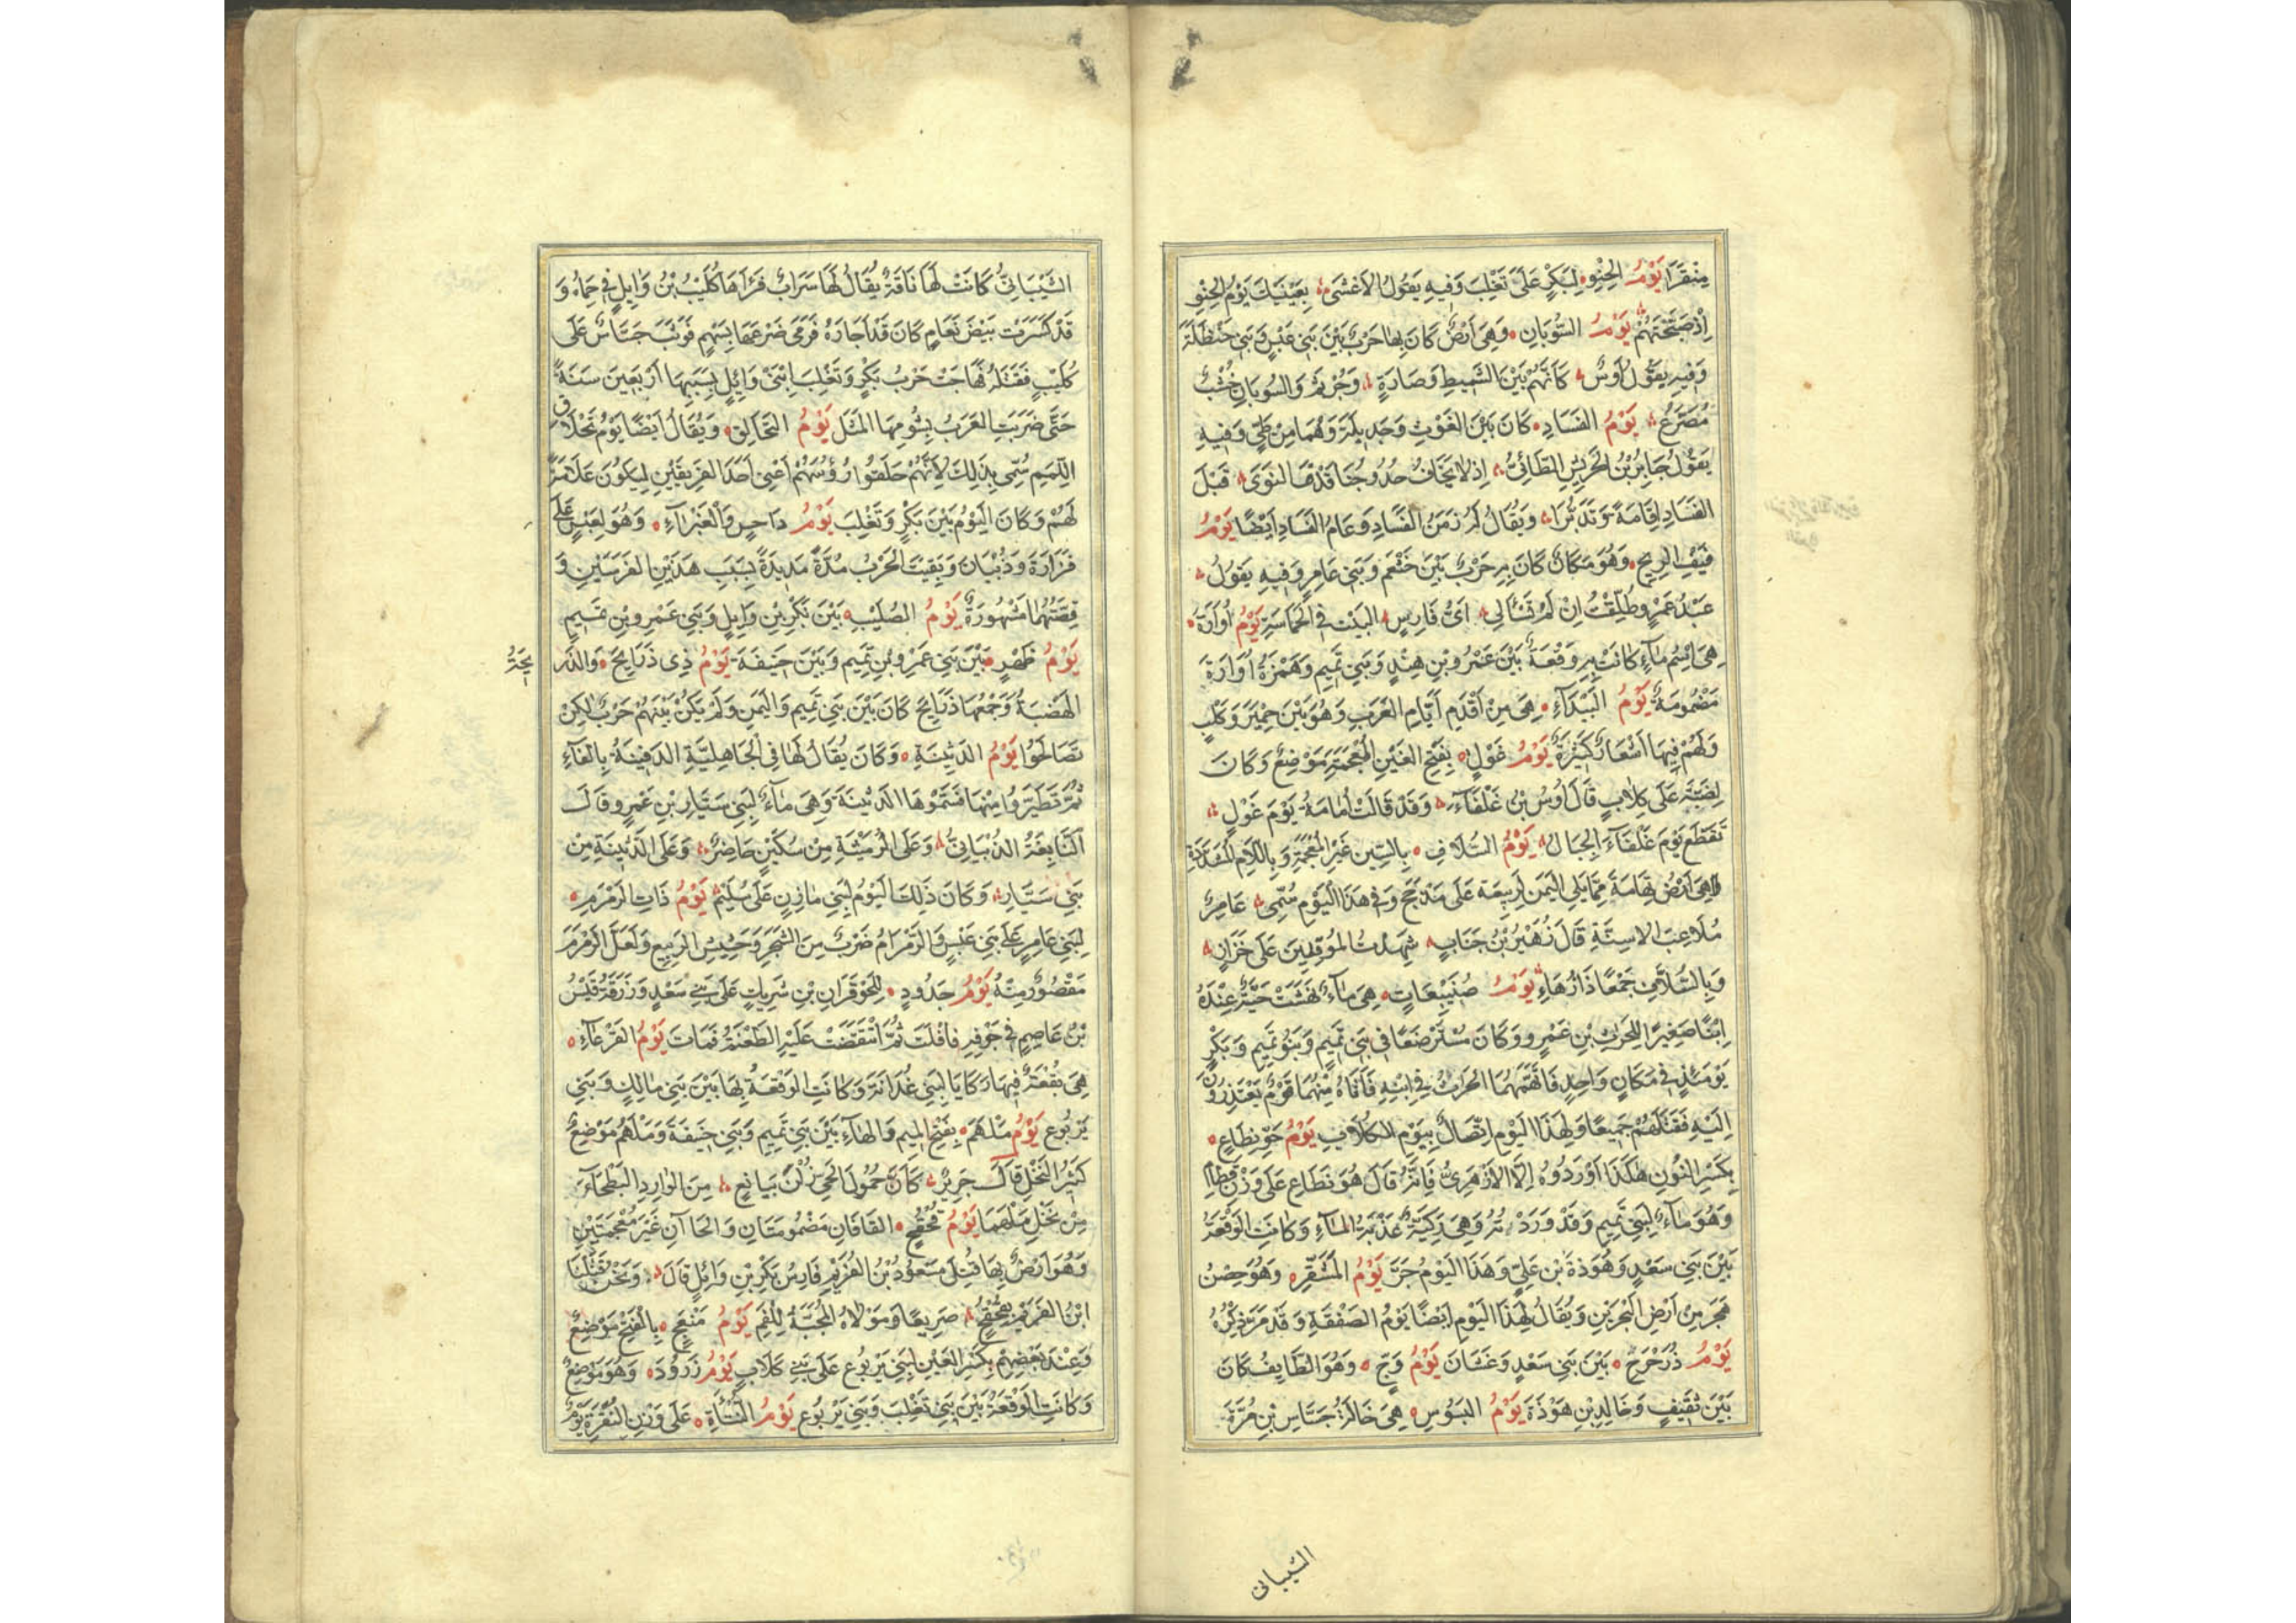 مِنْقَرًا يَوْمُ الحِنْوِ لِبَكْرٍ عَلَى تَغْلِبَ وَفِيهِ يَقُولُ الاَعْشَى بِعَيْنَيْكَ يَوْمُ الحِنْوِ
اِذْ صَبَّحَتْهُمْ يَوْمُ السُّوبَانِ وَهِيَ اَرْضٌ كَانَ بِهَا حَرْبٌ بَيْنَ بَنِي عَبْسٍ وَبَنِي حَنْظَلَةَ
وَفِيهِ يَقُولُ اَوْسٌ كَاَنَّهُمْ بَيْنَ الشَّمِيطِ وَصَارَةٍ وَجُرْثُمَ وَالسُّوبَانِ خُشْبٌ
مُصَرَّعُ يَوْمُ الفَسَادِ كَانَ بَيْنَ الغَوْثِ وَجَدِيلَةَ وَهُمَا مِنْ طَيٍّ وَفِيهِ
يَقُولُ جَابِرُ بْنُ الحَرِيشِ الطَّائِيُّ اِذْ لَا يَخَافُ حُدُوجُنَا قَذْفَ النَّوَى قَبْلَ
الفَسَادِ اِقَامَةً وَتَدَيُّرَا وَيُقَالُ لَهُ زَمَنُ الفَسَادِ وَعَامُ الفَسَادِ اَيْضًا يَوْمُ
فَيْفِ الرِّيحِ وَهُوَ مَكَانٌ كَانَ بِهِ حَرْبٌ بَيْنَ خَثْعَمَ وَبَنِي عَامِرٍ وَفِيهِ يَقُولُ
عَبْدُ عَمْرٍو طُلِّقْتِ اِنْ لَمْ تَسْاَلِي اَيُّ فَارِسٍ البَيْت فِي الحَمَاسَةِ يَوْمُ اُوَارَةَ
هِيَ اِسْمُ مَاءٍ كَانَتْ بِهِ وَقْعَةٌ بَيْنَ عَمْرِو بْنِ هِنْدٍ وَبَنِي تَمِيمٍ وَهَمْزَةُ اُوَارَةَ
مَضْمُومَةٌ يَوْمُ البَيْدَآءِ هِيَ مِنْ اَقْدَمِ اَيَّامِ العَرَبِ وَهُوَ بَيْنَ حِمْيَرَ وَكَلْبٍ
وَلَهُمْ فِيهَا اَشْعَارٌ كَثِيرَةٌ يَوْمُ غَوْلٍ بِفَتْحِ الغَيْنِ المُعْجَمَةِ مَوْضِعٌ وَكَانَ
لِضَبَّةَ عَلَى كِلَابٍ قَالَ اَوْسُ بْنُ غَلْفَآءَ وَقَدْ قَالَتْ اُمَامَةُ يَوْمَ غَوْلٍ
تَقَطَّعَ يَوْمَ غَلْفَآءَ الحِبَالُ يَوْمُ السُّلَّافِ بِالسِّينِ غَيْرِ المُعْجَمَةِ وَبِاللَّامِ المُشَدَّدَةِ
وَهِيَ اَرْضُ تِهَامَةَ مِمَّا يَلِي اليَمَنَ لِرَبِيعَةَ عَلَى مَذْحِجٍ وَفِي هَذَا اليَوْمِ سُمِّيَ عَامِرٌ
مُلَاعِبَ الاَسِنَّةِ قَالَ زُهَيْرُ بْنُ جَنَابٍ شَهِدْتُ المُوقِدِينَ عَلَى خَزَازٍ
وَبِالسُّلَّانِ جَمْعًا ذَا زُهَاءِ يَوْمُ صُنَيْبِعَاتٍ هِيَ مَآءٌ نَهَشَتْ حَيَّةٌ عِنْدَهُ
اِبْنًا صَغِيرًا لِلْحَرِثِ بْنِ عَمْرٍو وَكَانَ مُسْتَرْضَعًا فِي بَنِي تَمِيمٍ وَبَنُو تَمِيمٍ وَبَكْرٍ
يَوْمَئِذٍ فِي مَكَانٍ وَاحِدٍ فَاتَّهَمَهُمَا الحَرِثُ فِي ابْنِهِ فَاَتَاهُ مِنْهُمَا قَوْمٌ يَعْتَذِرُونَ
اِلَيْهِ فَقَتَلَهُمْ جَمِيعًا وَلِهَذَا اليَوْمِ اِتِّصَالٌ بِيَوْمِ الكُلَابِ يَوْمُ جَوِّ نِطَاعٍ
بِكَسْرِ النُّونِ هَكَذَا اَوْرَدُوهُ اِلَّا الاَزْهَرِيُّ فَاِنَّهُ قَالَ هُوَ نَطَاعِ عَلَى وَزْنِ قَطَامِ
وَهُوَ مَآءٌ لِبَنِي تَمِيمٍ وَقَدْ وَرَدْتُهُ وَهِيَ رَكِيَّةٌ عَذْبَةُ المَآءِ وَكَانَتِ الوَقْعَةُ
بَيْنَ بَنِي سَعْدٍ وَهَوْذَةَ بْنِ عَلِيٍّ وَهَذَا اليَوْمُ جَرَّ يَوْمُ المُشَقَّرِ وَهُوَ حِصْنُ
هَجَرَ مِنْ اَرْضِ البَحْرَيْنِ وَيُقَالُ لِهَذَا اليَوْمِ اَيْضًا يَوْمُ الصَّفْقَةِ وَقَدْ مَرَّ ذِكْرُهُ
يَوْمُ ذُرَحْرَحٍ بَيْنَ بَنِي سَعْدٍ وَغَسَّانَ يَوْمُ وَجٍّ وَهُوَ الطَّايِفُ كَانَ
بَيْنَ ثَقِيفٍ وَخَالِدِ بْنِ هَوْذَةَ يَوْمُ البَسُوسِ هِيَ خَالَةُ جَسَّاسِ بْنِ مُرَّةَ
الشيبانى
الشَّيْبَانِيِّ كَانَتْ لَهَا نَاقَةٌ يُقَالُ لَهَا سَرَابُ فَرَاَهَا كُلَيْبُ بْنُ وَايِلٍ فِي حِمَاهُ وَ
قَدْ كَسَرَتْ بَيْضَ نَعَامٍ كَانَ قَدْ اَجَارَهُ فَرَمَى ضَرْعَهَا بِسَهْمٍ فَوَثَبَ جَسَّاسٌ عَلَى
كُلَيْبٍ فَقَتَلَهُ فَهَاجَتْ حَرْبُ بَكْرٍ وَتَغْلِبَ اِبْنَيْ وَائِلٍ بِسَبَبِهَا اَرْبَعِينَ سَنَةً
حَتَّى ضَرَبَتِ العَرَبُ بِشُومِهَا المَثَلَ يَوْمُ التَّحَالُقِ وَيُقَالُ اَيْضًا يَوْمُ تَحْلَاقِ
اللِّمَمِ سُمِّيَ بِذَلِكَ لِاَنَّهُمْ حَلَقُوا رُؤُسَهُمْ اَعْنِي اَحَدَ الفَرِيقَيْنِ لِيَكُونَ عَلَامَةً
لَهُمْ وَكَانَ اليَوْمُ بَيْنَ بَكْرٍ وَتَغْلِبَ يَوْمُ دَاحِسٍ وَالْغَبْرَآءِ وَهُوَ لِعَبْسٍ عَلَى
فَزَارَةَ وَذُبْيَانَ وَبَقِيَتِ الحَرْبُ مُدَّةً مَدِيدَةً بِسَبَبِ هَذَيْنِ الفَرَسَيْنِ وَ
قِصَّتُهُمَا مَشْهُورَةٌ يَوْمُ الصُّلَيْبِ بَيْنَ بَكْرِ بْنِ وَايِلٍ وَبَنِي عَمْرِو بْنِ تَمِيمٍ
يَوْمُ ظَهْرٍ بَيْنَ بَنِي عَمْرِو بْنِ تَمِيمٍ وَبَيْنَ حَنِيفَةَ يَوْمُ ذِي ذَرَايِحَ وَالذَّر
الهَضْبَةُ وَجَمْعُهَا ذَرَايِحُ كَانَ بَيْنَ بَنِي تَمِيمٍ وَاليَمَنِ وَلَمْ يَكُنْ بَيْنَهُمْ حَرْبٌ لٰكِنْ
تَصَالَحُوا يَوْمُ الدَّثِينَةِ وَكَانَ يُقَالُ لَهَا فِي الْجَاهِلِيَّةِ الدَّفِينَةُ بِالْفَآءِ
ثُمَّ تَطَيَّرُوا مِنْهَا فَسَمَّوْهَا الدَّثِينَةَ وَهِيَ مَآءٌ لِبَنِي سَيَّارِ بْنِ عَمْرٍو قَالَ
النَّابِغَةُ الذُّبْيَانِيُّ وَعَلَى الرُّمَيْثَةِ مِنْ سُكَيْنٍ حَاضِرٌ وَعَلَى الدَّثِينَةِ مِنْ
بَنِي سَيَّارِ وَكَانَ ذَلِكَ اليَوْمُ لِبَنِي مَازِنٍ عَلَى سُلَيْمٍ يَوْمُ ذَاتِ الرَّمْرَمِ
لِبَنِي عَامِرٍ عَلَى بَنِي عَبْسٍ وَالرَّمْرَامُ ضَرْبٌ مِنَ الشَّجَرِ وَحَشِيشِ الرَّبِيعِ وَلَعَلَّ الرَّمْرَمَ
مَقْصُورٌ مِنْهُ يَوْمُ جَدُودٍ لِلْحَوْفَزَانِ بْنِ شَرِيكٍ عَلَى بَنِي سَعْدٍ وَزَرَقَهُ قَيْسُ
بْنُ عَاصِمٍ فِي جَوْفِهِ فَاَفْلَتَ ثُمَّ انْتَقَضَتْ عَلَيْهِ الطَّعْنَةُ فَمَاتَ يَوْمُ القَرْعَآءِ
هِيَ بُقْعَةٌ فِيهَا رَكَايَا لِبَنِي غُدَانَةَ وَكَانَتِ الوَقْعَةُ بِهَا بَيْنَ بَنِي مَالِكٍ وَبَنِي
يَرْبُوعٍ يَوْمُ مَلْهَمٍ بِفَتْحِ المِيمِ وَالهَآءِ بَيْنَ بَنِي تَمِيمٍ وَبَنِي حَنِيفَةَ وَمَلْهَمُ مَوْضِعٌ
كَثِيرُ النَّخْلِ قَالَ جَرِيرٌ كَاَنَّ حُمُولَ الحَيِّ زُلْنَ بِيَانِعٍ مِنَ الوَارِدِ البَطْحَآءَ
مِنْ نَخْلِ مَلْهَمَا يَوْمُ قُحْقُحٍ القَافَانِ مَضْمُومَتَانِ وَالحَاآنِ غَيْرُ مُعْجَمَتَيْنِ
وَهُوَ اَرْضٌ بِهَا قُتِلَ مَسْعُودُ بْنُ القُرَيْمِ فَارِسُ بَكْرِ بْنِ وَائِلٍ قَالَ وَنَحْنُ قَتَلْنَا
ابْنَ القُرَيْمِ بِقُحْقُحٍ صَرِيعًا وَمَوْلَاهُ المُجَبَّهُ لِلْفَمِ يَوْمُ مَنْعَجٍ بِالْفَتْحِ مَوْضِعٌ
وَعِنْدَ بَعْضِهِمْ بِكَسْرِ العَيْنِ لِبَنِي يَرْبُوعٍ عَلَى بَنِي كِلَابٍ يَوْمُ زَرُودَ وَهُوَ مَوْضِعٌ
وَكَانَتِ الوَقْعَةُ بَيْنَ بَنِي تَغْلِبَ وَبَنِي يَرْبُوعٍ يَوْمُ عَلَى وَزْنِ